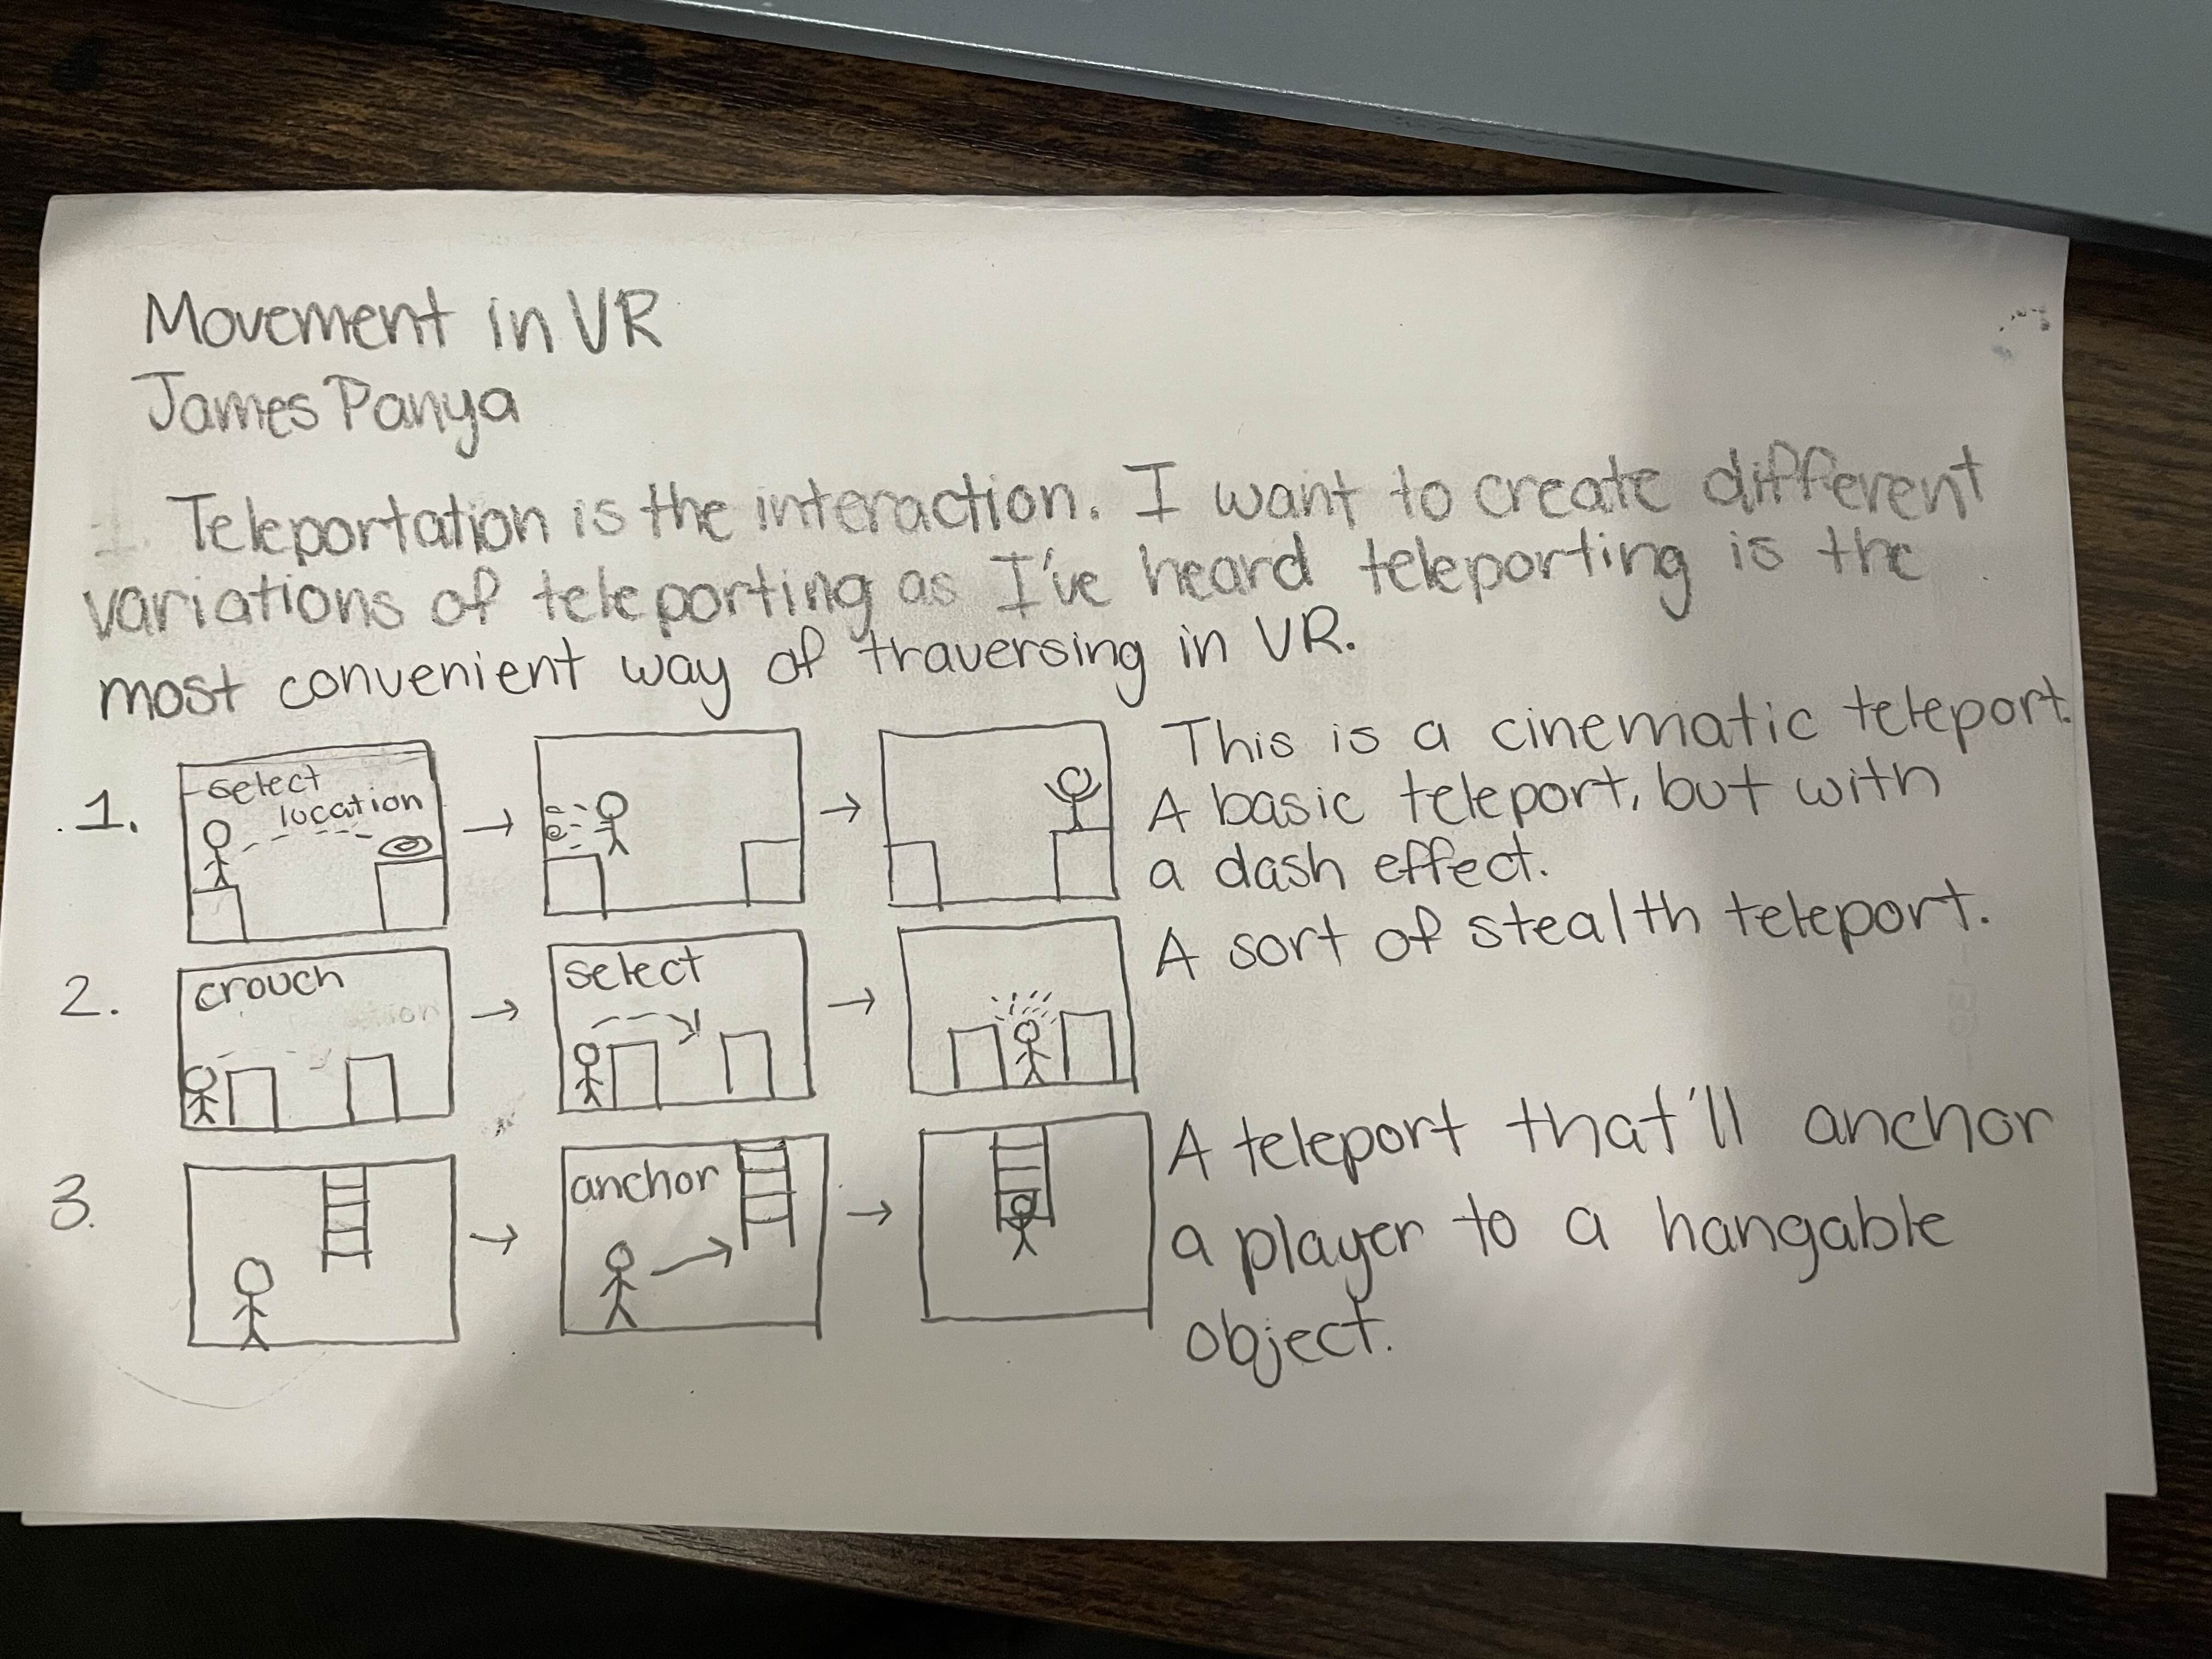 Movement in VR
James Panya
Teleportation is the interaction. I want to create different
variations of teleporting as I've heard teleporting is the
most convenient way of traversing in VR.
1.
select
location
This is a cinematic teleport.
A basic teleport, but with
a dash effect.
2.
crouch
select
A sort of stealth teleport.
3.
anchor
A teleport that'll anchor
a player to a hangable
object.